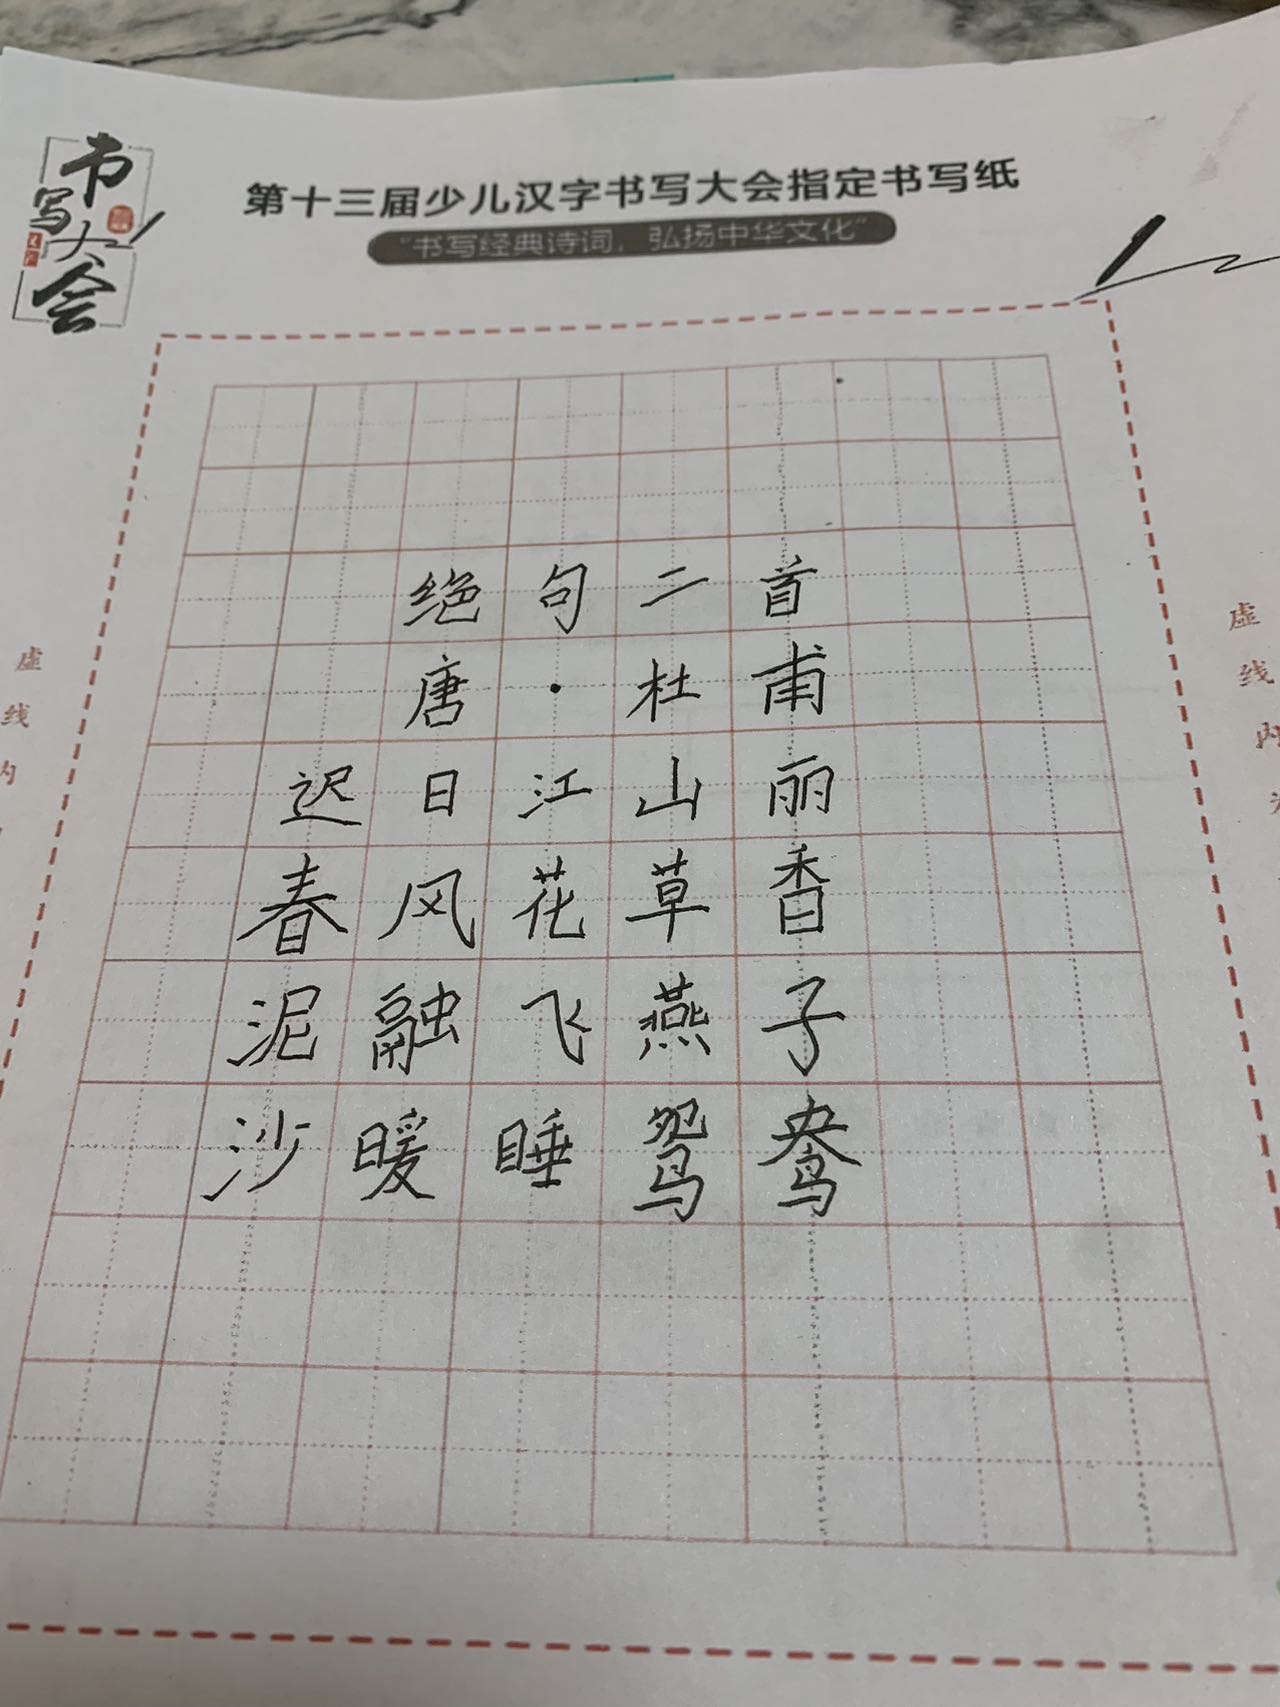 书写大会
第十三届少儿汉字书写大会指定书写纸
“书写经典诗词，弘扬中华文化”
绝句二首
唐·杜甫
迟日江山丽
春风花草香
泥融飞燕子
沙暖睡鸳鸯
虚线内
虚线内